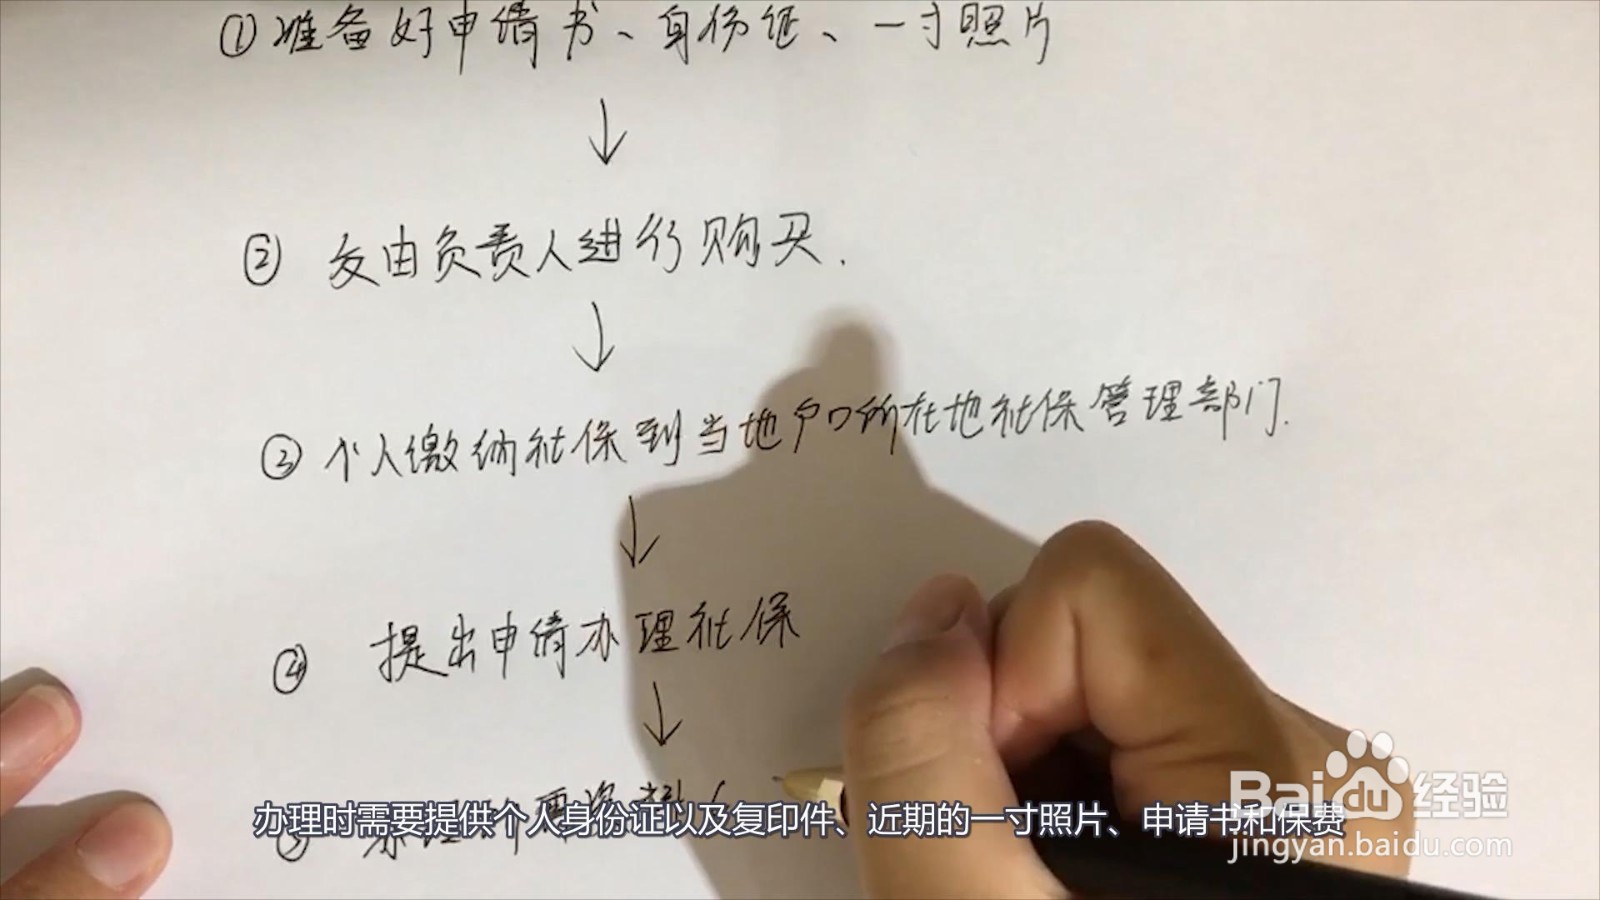 ①准备好申请书、身份证、一寸照片
② 交由负责人进行购买.
③ 个人缴纳社保到当地户口所在地社保管理部门.
④ 提出申请办理社保
办理
办理时需要提供个人身份证以及复印件、近期的一寸照片、申请书和保费
Bai du 经验
jingyan.baidu.com